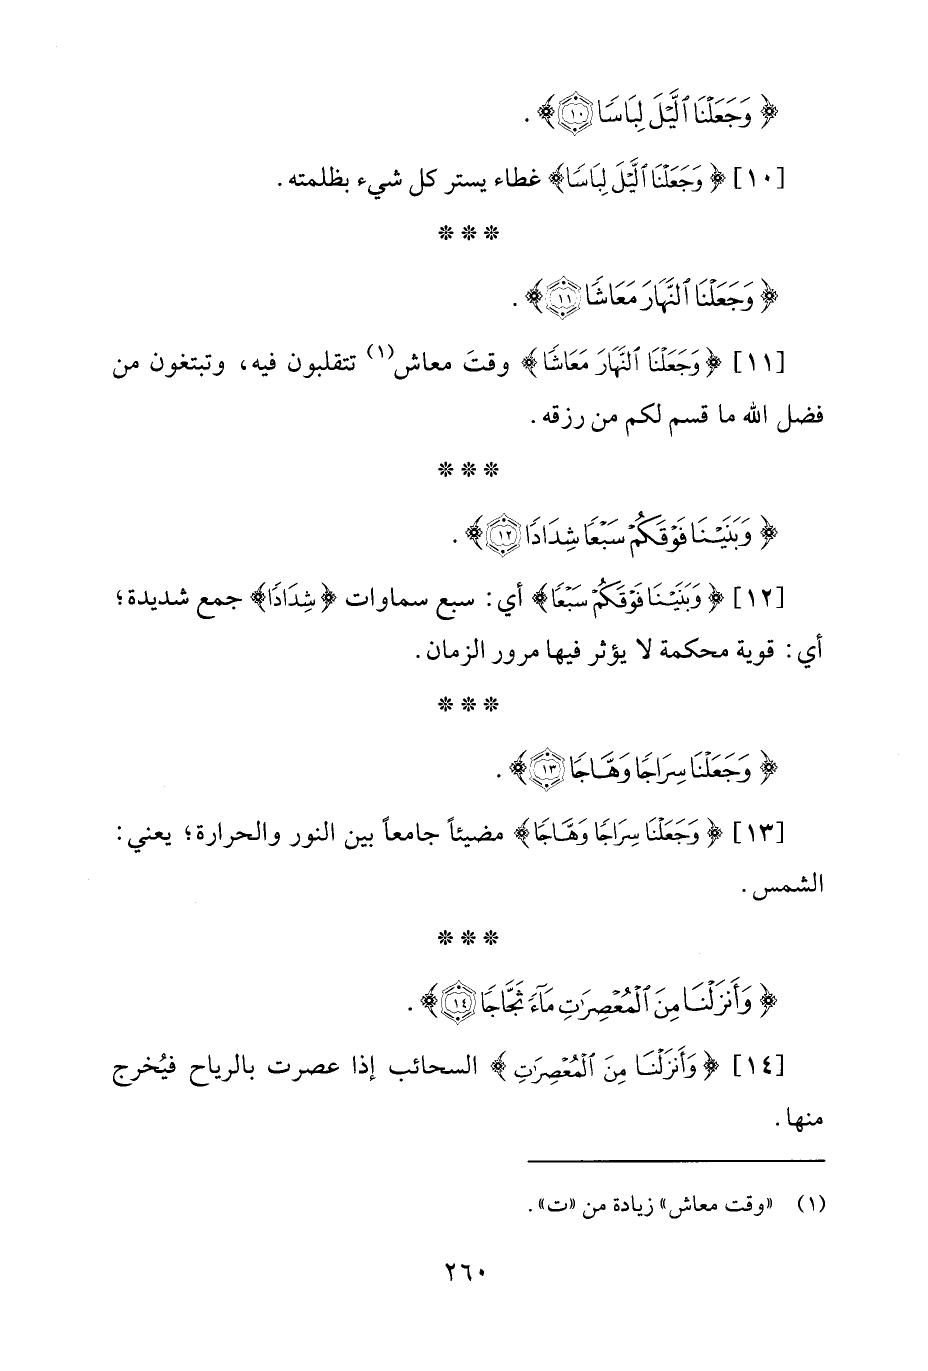 ﴿ وَجَعَلْنَا ٱلَّيْلَ لِبَاسًا ۝١٠ ﴾ .
[١٠] ﴿ وَجَعَلْنَا ٱلَّيْلَ لِبَاسًا ﴾ غطاء يستر كل شيء بظلمته .
* * *
﴿ وَجَعَلْنَا ٱلنَّهَارَ مَعَاشًا ۝١١ ﴾ .
[١١] ﴿ وَجَعَلْنَا ٱلنَّهَارَ مَعَاشًا ﴾ وقتَ معاش(١) تتقلبون فيه، وتبتغون من
فضل الله ما قسم لكم من رزقه .
* * *
﴿ وَبَنَيْنَا فَوْقَكُمْ سَبْعًا شِدَادًا ۝١٢ ﴾ .
[١٢] ﴿ وَبَنَيْنَا فَوْقَكُمْ سَبْعًا ﴾ أي: سبع سماوات ﴿ شِدَادًا ﴾ جمع شديدة؛
أي: قوية محكمة لا يؤثر فيها مرور الزمان .
* * *
﴿ وَجَعَلْنَا سِرَاجًا وَهَّاجًا ۝١٣ ﴾ .
[١٣] ﴿ وَجَعَلْنَا سِرَاجًا وَهَّاجًا ﴾ مضيئاً جامعاً بين النور والحرارة؛ يعني:
الشمس .
* * *
﴿ وَأَنزَلْنَا مِنَ ٱلْمُعْصِرَٰتِ مَآءً ثَجَّاجًا ۝١٤ ﴾ .
[١٤] ﴿ وَأَنزَلْنَا مِنَ ٱلْمُعْصِرَٰتِ ﴾ السحائب إذا عصرت بالرياح فيُخرج
منها .
(١) «وقت معاش» زيادة من «ت» .
٢٦٠